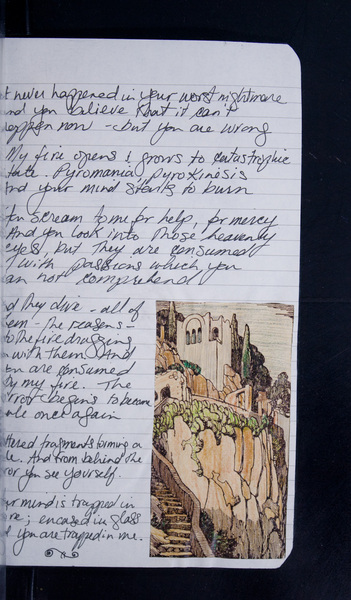 t never happened in your worst nightmare
and you believe that it can't
happen now - but you are wrong
My fire opens & grows to catastrophic
state. Pyromania, Pyrokinesis
And your mind starts to burn
You scream to me for help, for mercy
And you look into those heavenly
eyes, but they are consumed
with passions which you
can not comprehend
d they dive - all of
em - the reasons -
to the fire dragging
n with them. And
you are consumed
by my fire. The
mirror begins to become
whole once again
ttered fragments forming a
le. And from behind the
ror you see yourself.
ur mind is trapped in
re; encased in glass
d you are trapped in me.